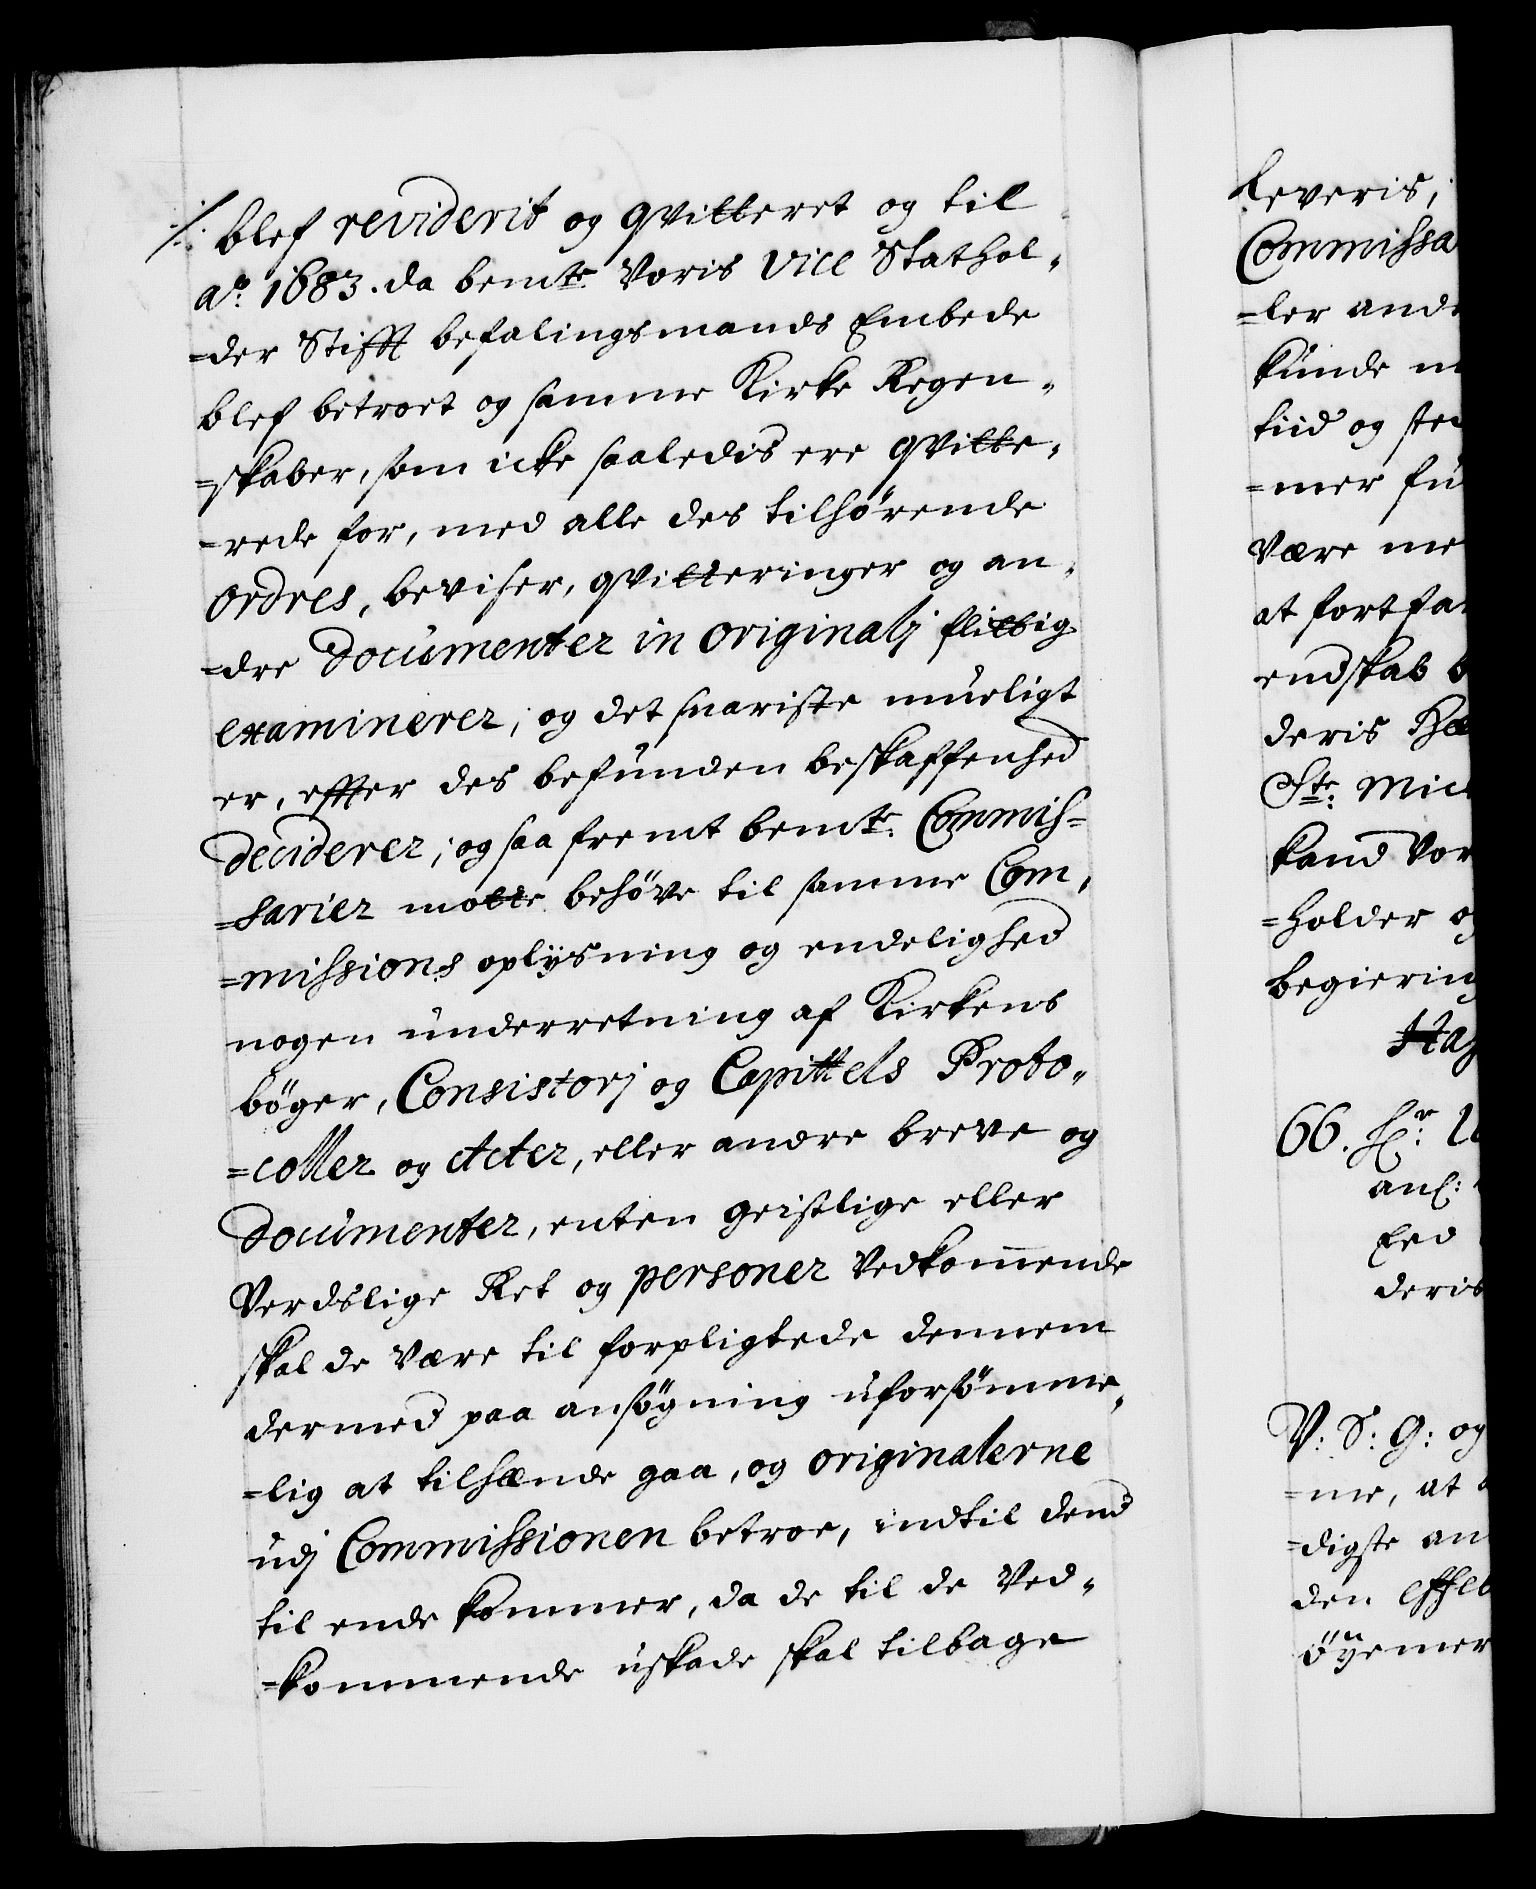 ⁒ blef reviderit og qvitteret og til
aō: 1683. da bemte Voris Vice Stathol-
=der Stifft befalingsmands Embede
blef betroet og samme Kirke Regen-
=skaber, som icke saaledis ere qvitte-
=rede for, med alle des tilhörende
Ordres, beviser, qvitteringer og an-
=dre Documenter in originalj flittig
examinerer; og det snariste mueligt
er, effter des befunden beskaffenhed
deciderer; og saa fremt bemte: Commis=
=sarier motte behöve til samme Com-
=missions oplysning og endelighed
nogen underretning af Kirkens
böger, Consistorj og Capittels Proto-
=coller og Acter, eller andre breve og
documenter, enten geistlige eller
Verdslige Ret og personer Vedkommende
skal de Være til forpligtede dennem
dermed paa ansögning uforsömme-
=lig at tilhænde gaa, og originalerne
udj Commissionen betroe, indtil dend
til ende kommer, da de til de Ved-
=kommende uskade skal tilbage
leveris;
Commissa
=ler and
kunde
tiid og
=mer
Være
at
endskab
deris
Ste: Mic
kand Vor
=holder
begiering
Hag
66. Hr:
anl:
Eed
deris
V: S: G: og
=me, at
=digste an
den
öyemer